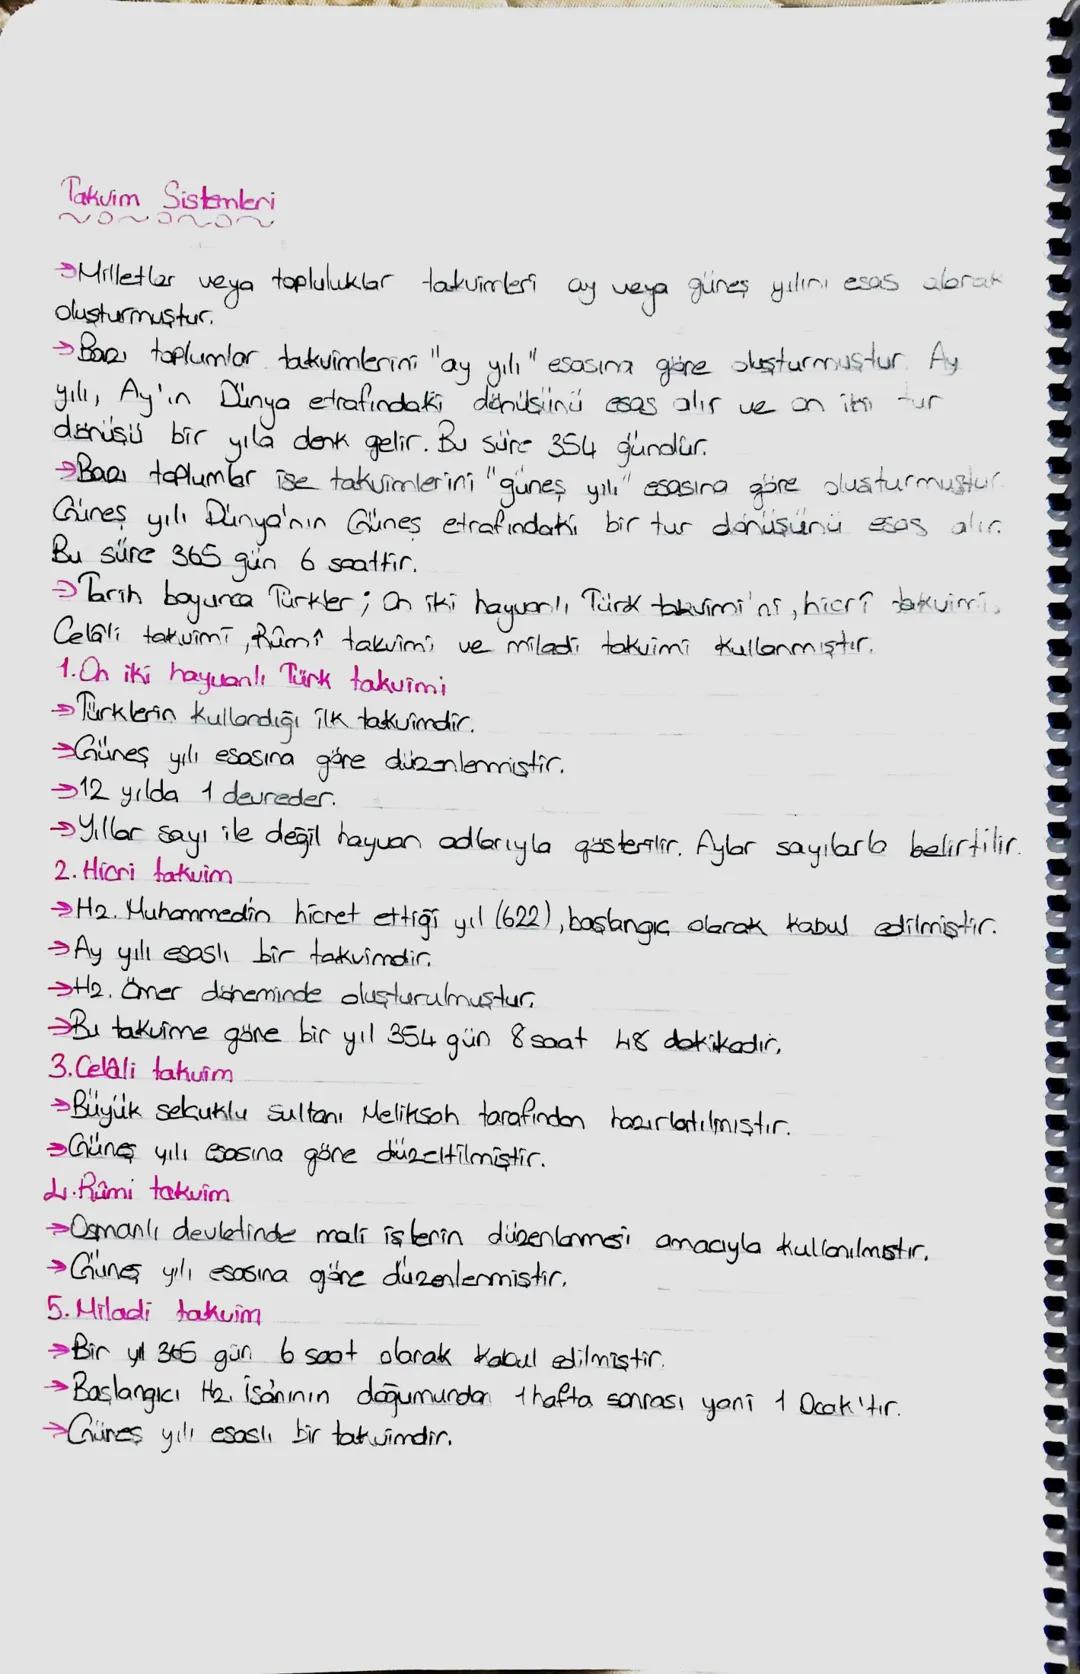 Takvim Sistemleri
→Milletler veya topluluklar takvimleri ay veya güneş yılını esas alarak
oluşturmuştur.
→Bazı toplumlar takvimlerini "ay yılı" esasına göre oluşturmuştur. Ay
yılı, Ay'ın Dünya etrafındaki dönüşünü esas alır ve on iki tur
dönüşü bir yıla denk gelir. Bu süre 354 gündür.
→Bazı toplumlar ise takvimlerini "güneş yılı" esasına göre oluşturmuştur.
Güneş yılı Dünya'nın Güneş etrafındaki bir tur dönüşünü esas alır.
Bu süre 365 gün 6 saattir.
→Tarih boyunca Türkler; On iki hayvanlı Türk takvimi'ni, hicrî takvimi,
Celâli takvimi, Rûmî takvimi ve miladi takvimi kullanmıştır.
1. On iki hayvanlı Türk takvimi
→Türklerin kullandığı ilk takvimdir.
→Güneş yılı esasına göre düzenlenmiştir.
→12 yılda 1 devreder.
→Yıllar sayı ile değil hayvan adlarıyla gösterilir. Aylar sayılarla belirtilir.
2. Hicri takvim
→Hz. Muhammedin hicret ettiği yıl (622), başlangıç olarak kabul edilmiştir.
→Ay yılı esaslı bir takvimdir.
→Hz. Ömer döneminde oluşturulmuştur.
→Bu takvime göre bir yıl 354 gün 8 saat 48 dakikadır.
3. Celâli takvim
→Büyük selcuklu sultanı Melikşah tarafından hazırlatılmıştır.
→Güneş yılı esasına göre düzeltilmiştir.
4. Rûmi takvim
→Osmanlı devletinde mali işlerin düzenlenmesi amacıyla kullanılmıştır.
→Güneş yılı esasına göre düzenlenmiştir.
5. Miladi takvim
→Bir yıl 365 gün 6 saat olarak kabul edilmiştir.
→Başlangıcı Hz. İsa'nının doğumundan 1 hafta sonrası yani 1 Ocak'tır.
→Güneş yılı esaslı bir takvimdir.